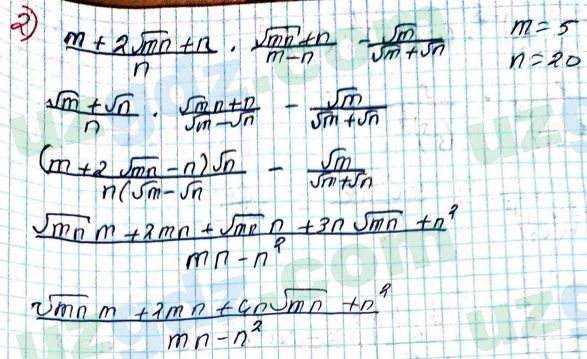 2) (m + 2√mn + n)/n · (√mn + n)/(m - n) - √m/(√m + √n) m = 5
n = 20
(√m + √n)/n · (√mn + n)/(√m - √n) - √m/(√m + √n)
(m + 2√mn - n)√n/n(√m - √n - √m/(√m + √n)
(√mn m + 2mn + √mn n + 3n√mn + n²)/(mn - n²)
(√mn m + 2mn + 4n√mn + n²)/(mn - n²)